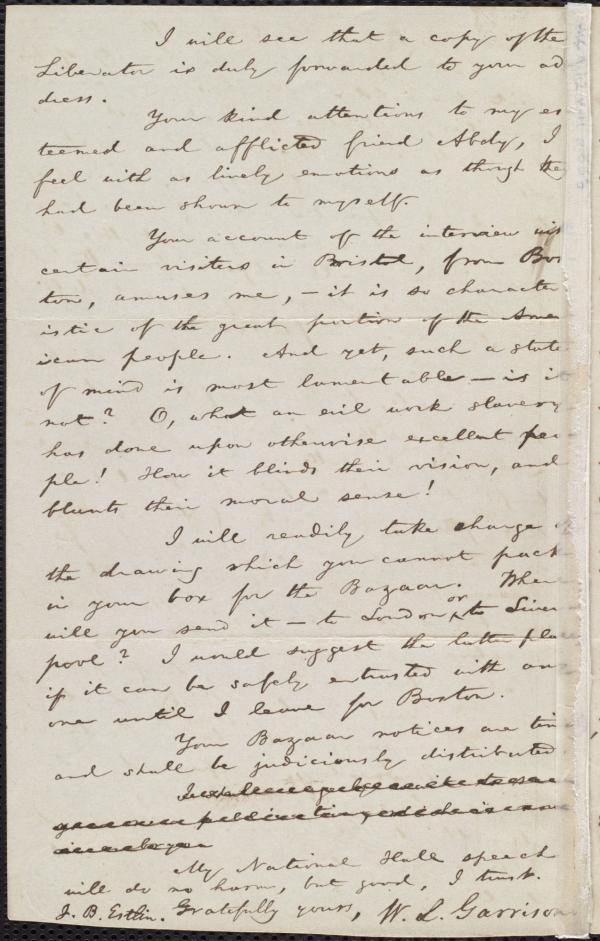 I will see that a copy of the
Liberator is duly forwarded to your ad
dress.
Your kind attentions to my es
teemed and afflicted friend Abdy, I
feel with as lively emotions as though the
had been shown to myself.
Your account of the interview wit
certain visiters in Bristol, from Bos
ton, amuses me, – it is so character
istic of the great portion of the Amer
ican people. And yet, such a state
of mind is most lamentable – is it
not? O, what an evil work slavery
has done upon otherwise excellent peo
ple! How it blinds their vision, and
blunts their moral sense!
I will readily take charge o
the drawing which you cannot pack
in your box for the Bazaar. When
will you send it – to London or to Liver
pool? I would suggest the latter place
if it can be safely entrusted with any
one until I leave for Boston.
Your Bazaar notices are
and shall be judiciously distributed
My National Hall speech
will do no harm, but good, I trust.
J. B. Estlin. Gratefully yours, W. L. Garrison